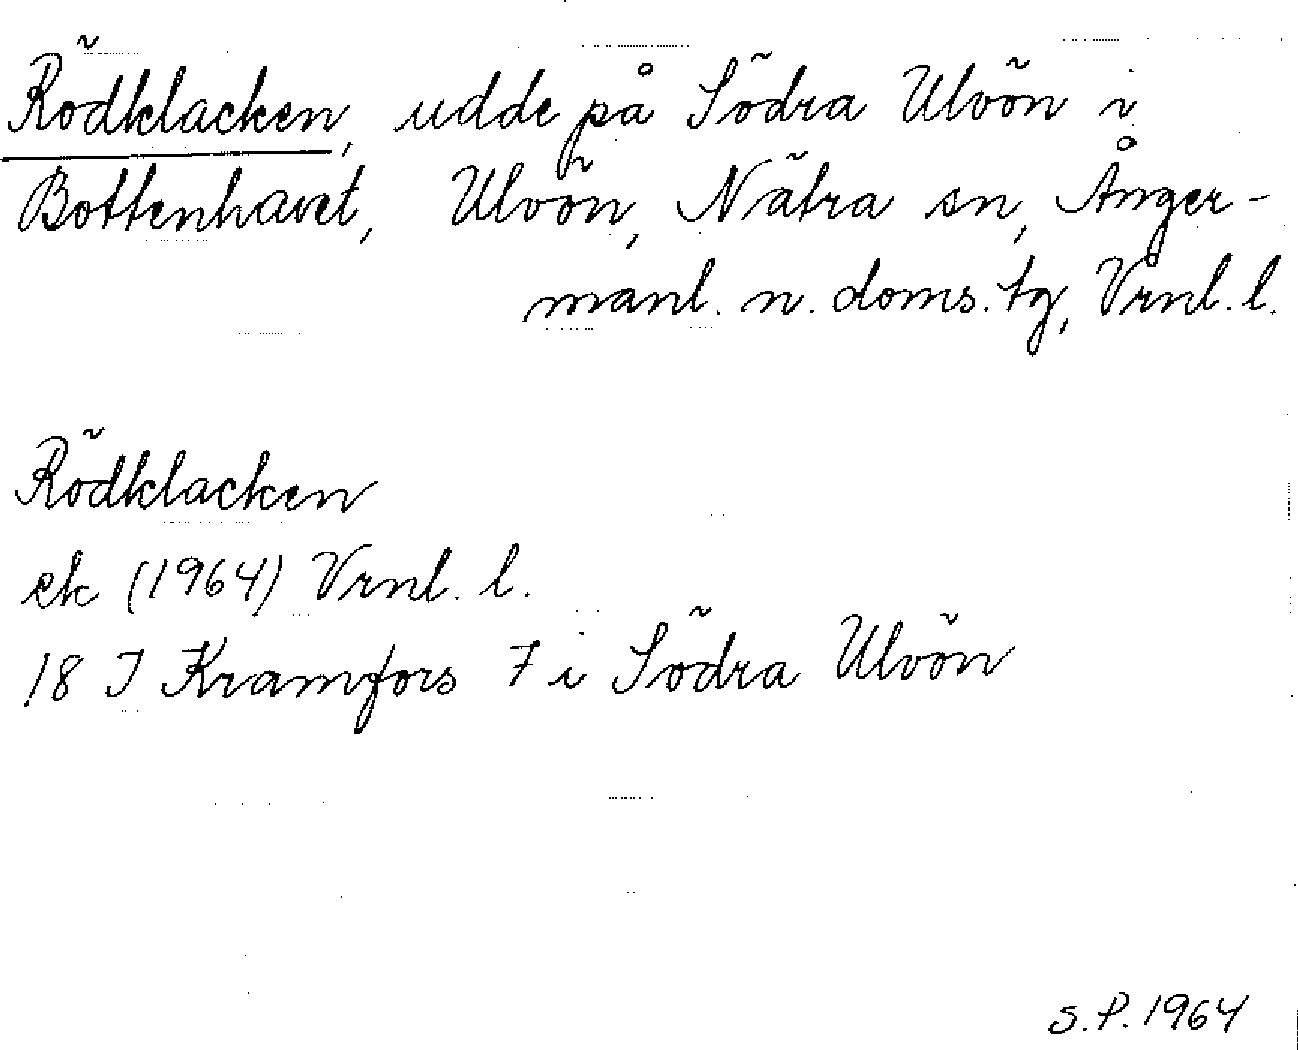 Rödklacken, udde på Södra Ulvön i
Bottenhavet, Ulvön, Nätra sn, Ånger-
manl. n. doms. tg, Vrnl. l.
Rödklacken
ek (1964) Vrnl. l.
18 I Kramfors 7 i Södra Ulvön
S.P. 1964